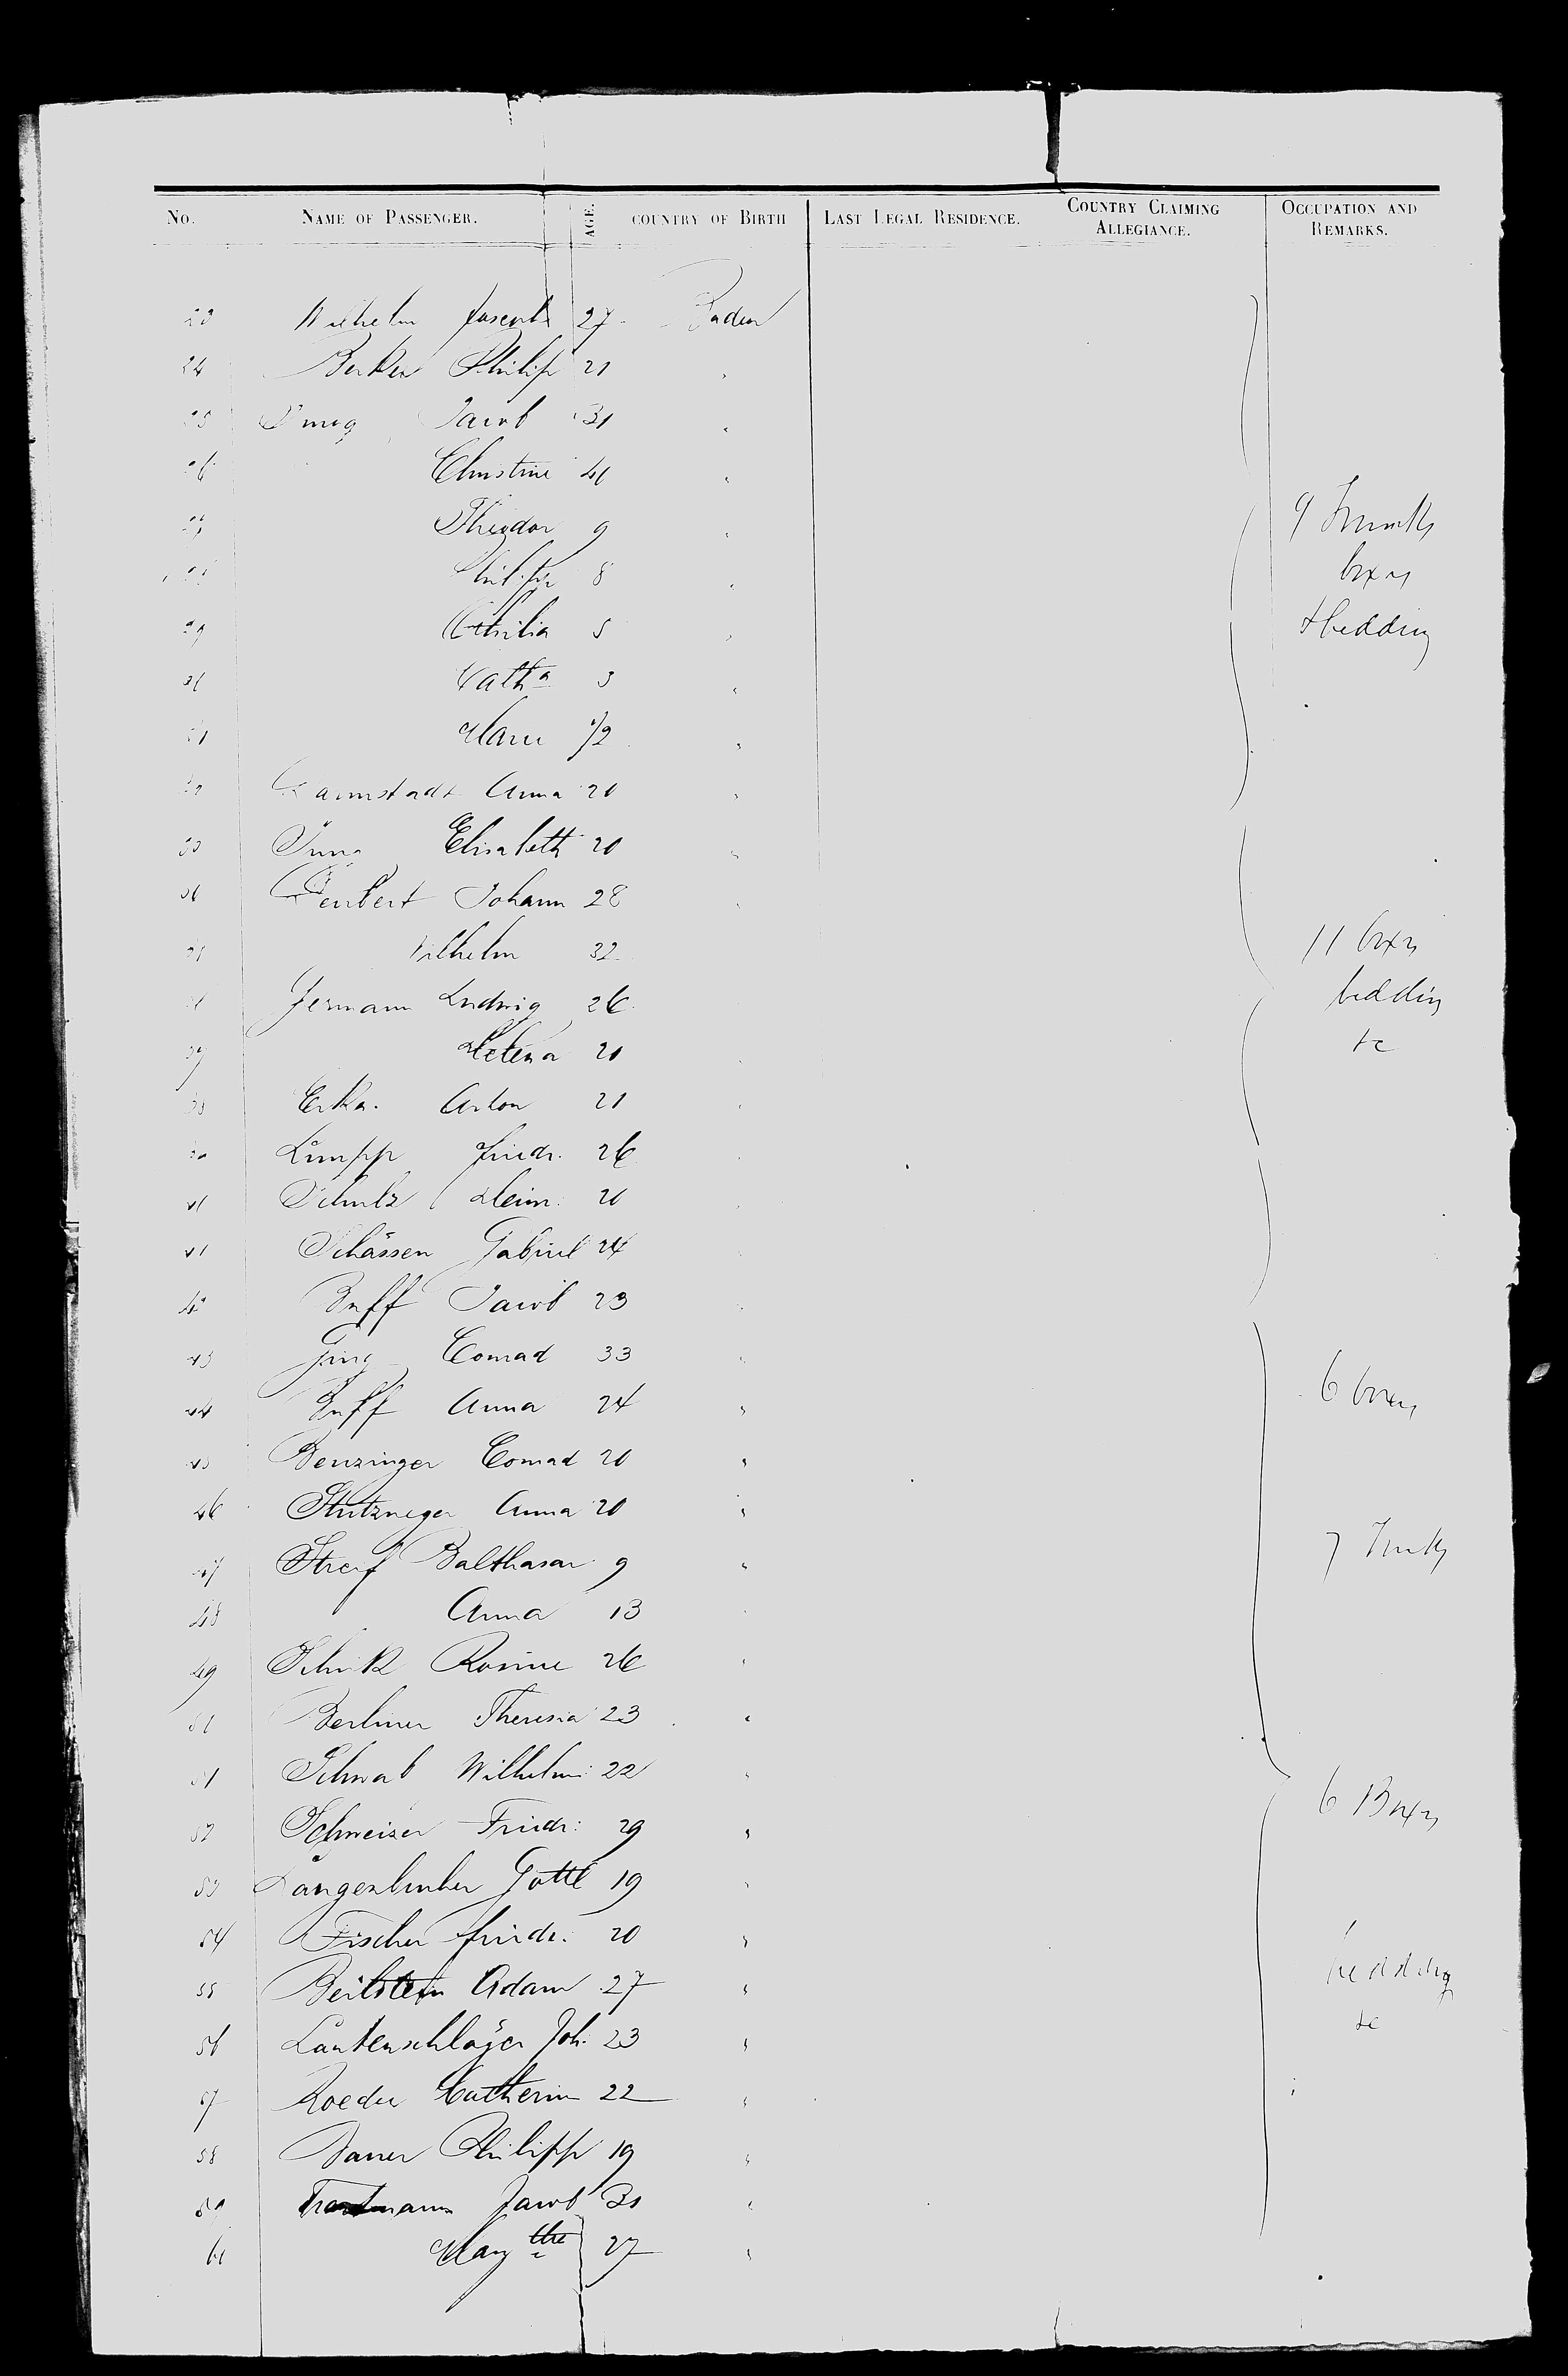 No. NAME OF PASSENGER. AGE. COUNTRY OF BIRTH LAST LEGAL RESIDENCE. COUNTRY CLAIMING ALLEGIANCE. OCCUPATION AND REMARKS.
23 Wilhelm Joseph 27 Baden
24 Philip 21 "
25 Jacob 31 "
26 Christine 40 "
27 Theodor 9 " 9 Trunks
28 Philipp 8 " boxes
29 5 " & bedding
30 Catha 3 "
31 Marie 1/2 "
32 Anna 20 "
33 Jung Elisabeth 20 "
34 Johann 28 "
35 Wilhelm 32 11 boxes
36 Jermann Ludwig 26 bedding
37 Helena 20 &c
38 Anton 21 "
39 Friedr. 26
40 Schulz Heinr. 20
41 Schässen Gabriel 24
42 Buff Jacob 23
43 Conrad 33 "
44 Buff Anna 24 " 6 boxes
45 Benzinger Conrad 20 "
46 Anna 20 "
47 Streif Balthasar 9 " 7 Trunks
48 Anna 13
49 Rosine 26 "
50 Berliner Theresia 23 "
51 Schwab Wilhelm 22 "
52 Schweizer Friedr: 29 " 6 Boxes
53 Gottl 19 "
54 Fischer Friedr. 20 "
55 Beilstein Adam 27 " bedding
56 Lautenschläger Joh. 23 " &c
57 Roeder Catherin 22 "
58 Philipp 19 "
59 Jacob 31 "
60 Marg the 27 "